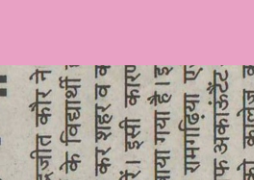 जीत कौर ने
के विद्यार्थी
कर शहर व
रें। इसी कारण
ाया गया है। इ
रामगढ़िया ए
फ अकाऊंटेंट
को कालेज